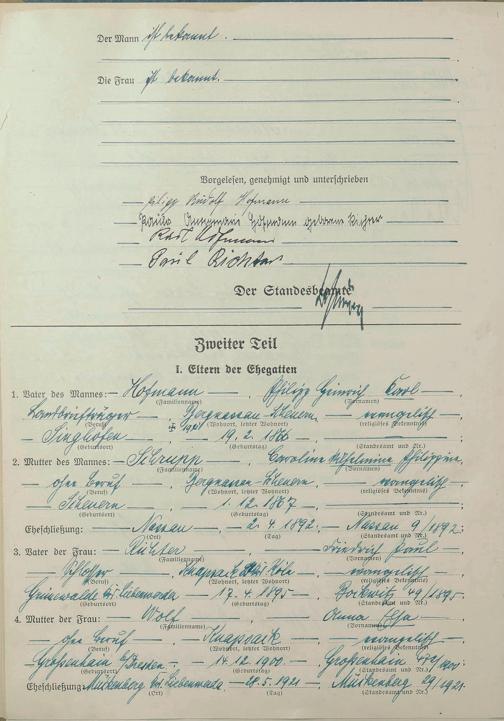 Der Mann ist bekannt.
Die Frau ist bekannt.
Vorgelesen, genehmigt und unterschrieben
Philipp Rudolf Hofmann
Paula Annemarie Hofmann geborene Richter
Karl Hofmann
Paul Richter
Der Standesbeamte
Zweiter Teil
I. Eltern der Ehegatten
1. Vater des Mannes: Hofmann, Philipp Heinrich Carl
(Familienname) (Vornamen)
Landbriefträger, Bergnassau-Scheuern, evangelisch
(Beruf) (Wohnort, letzter Wohnort) (religiöses Bekenntnis)
Singhofen, 19.2.1866,
(Geburtsort) (Geburtstag) (Standesamt und Nr.)
2. Mutter des Mannes: Schrupp, Caroline Wilhelmine Philippine
(Familienname) (Vornamen)
ohne Beruf, Bergnassau-Scheuern, evangelisch
(Beruf) (Wohnort, letzter Wohnort) (religiöses Bekenntnis)
Scheuern, 1.12.1867
(Geburtsort) (Geburtstag) (Standesamt und Nr.)
Eheschließung: Nassau, 2.4.1892, Nassau 9/1892;
(Ort) (Tag) (Standesamt und Nr.)
3. Vater der Frau: Richter, Friedrich Paul
(Familienname) (Vornamen)
Schlosser, Knapsack Köln, evangelisch
(Beruf) (Wohnort, letzter Wohnort) (religiöses Bekenntnis)
Grünewalde bei Liebenwerda, 17.4.1895, 49/1895
(Geburtsort) (Geburtstag) (Standesamt und Nr.)
4. Mutter der Frau: Wolf, Anna
(Familienname) (Vornamen)
ohne Beruf, Knapsack, evangelisch
(Beruf) (Wohnort, letzter Wohnort) (religiöses Bekenntnis)
Großenhain b/Dresden, 14.12.1900, Großenhain
(Geburtsort) (Geburtstag) (Standesamt und Nr.)
Eheschließung: Mückenberg bei Liebenwerda, 28.5.1921, Mückenberg 29/1921.
(Ort) (Tag) (Standesamt und Nr.)